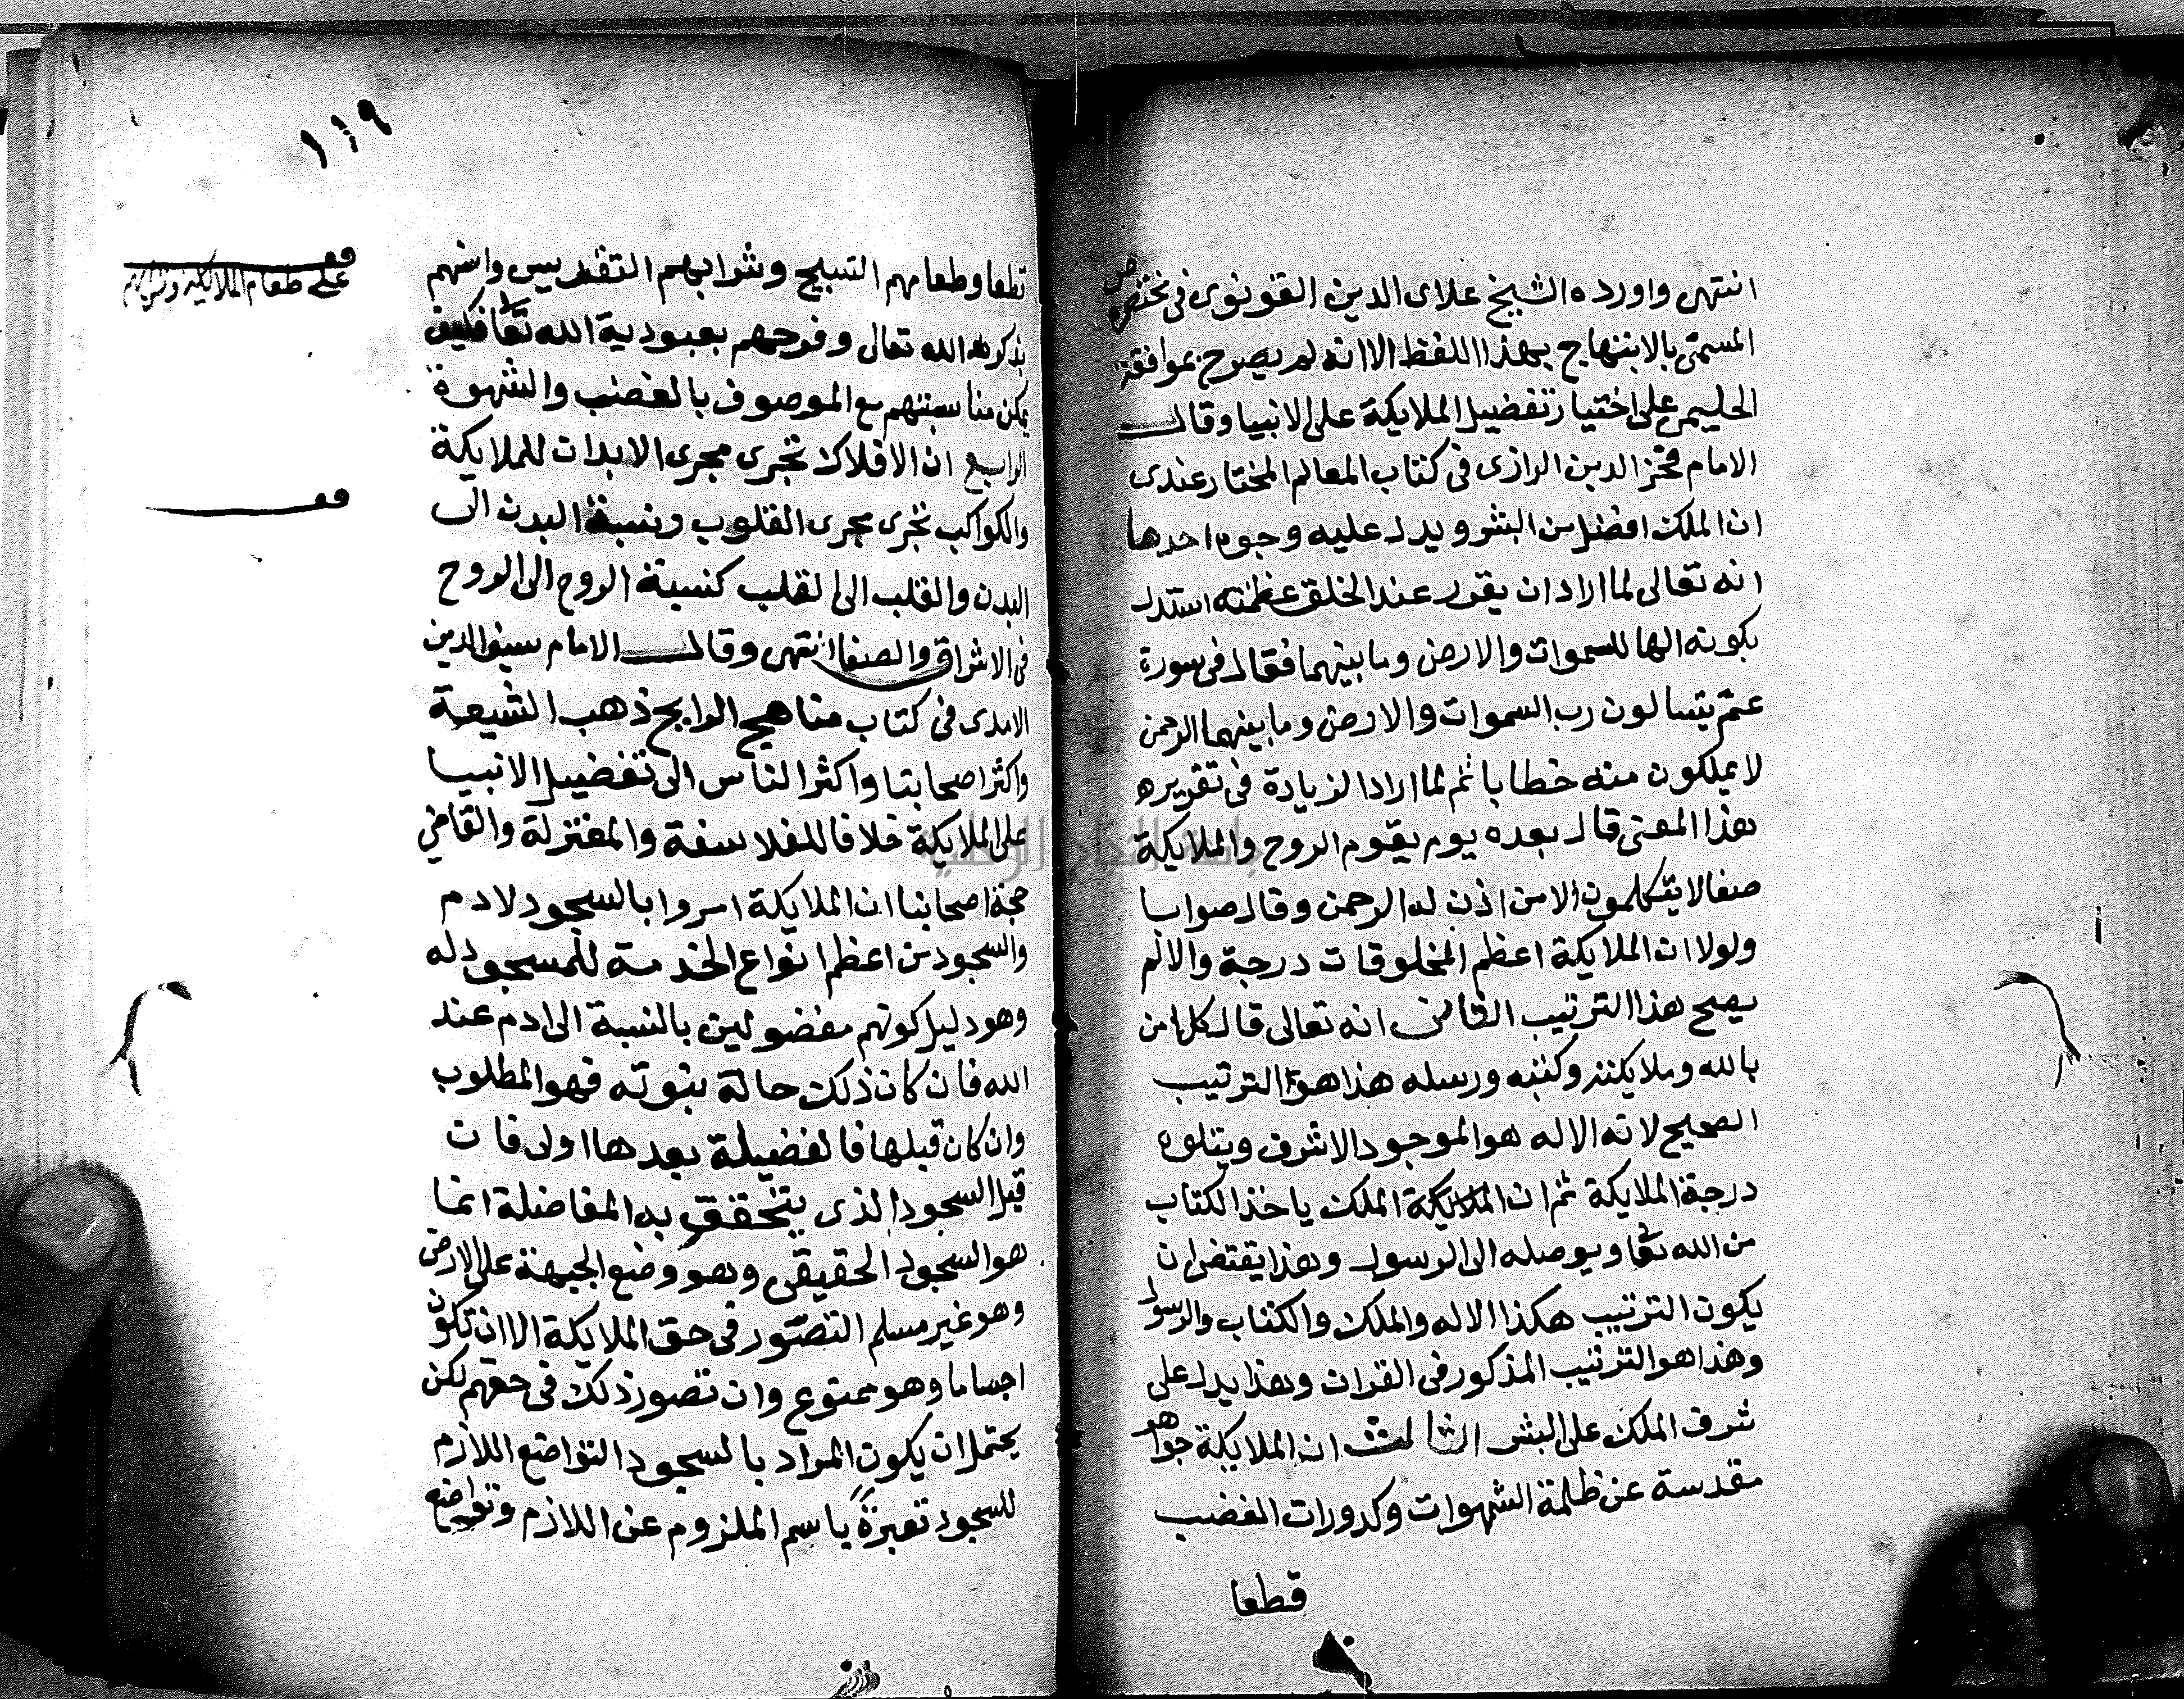 انتهى واورده الشيخ علاى الدين القونوى فى مختصره
المسمى بالابتهاج بهذا اللفظ الا انه لم يصرح بموافقة
الحليمى على اختيار تفضيل الملايكة على الانبيا وقال
الامام فخر الدين الرازى فى كتاب المعالم المختار عندى
ان الملك افضل من البشر ويدل عليه وجوه احدها
انه تعالى لما اراد ان يقرر عند الخلق عظمته استدل
بكونه الها للسموات والارض وما بينهما فقال فى سورة
عم يتسالون رب السموات والارض وما بينهما الرحمن
لا يملكون منه خطابا ثم لما اراد الزيادة فى تقريره
هذا المعنى قال بعده يوم يقوم الروح والملايكة
صفا لا يتكلمون الا من اذن له الرحمن وقال صوابا
ولولا ان الملايكة اعظم المخلوقات درجة والا لم
يصح هذا الترتيب الثانى انه تعالى قال كل امن
بالله وملايكته وكتبه ورسله هذا هو الترتيب
الصحيح لانه الاله هو الموجود الاشرف ويتلوه
درجة الملايكة ثم ان الملك ياخذ الكتاب
من الله تعا ويوصله الى الرسول وهذا يقتضى ان
يكون الترتيب هكذا الاله والملك والكتاب والرسول
وهذا هو الترتيب المذكور فى القران وهذا يدل على
شرف الملك على البشر الثالث ان الملايكة جواهر
مقدسة عن ظلمة الشهوات وكدورات الغضب
قطعا
١١٩
قطعا وطعامهم التسبيح وشرابهم التقديس وانسهم
بذكر الله تعالى وفرحهم بعبودية الله تعا فكيف
يمكن مناسبتهم مع الموصوف بالغضب والشهوة
الرابع ان الافلاك تجرى مجرى الابدان للملايكة
والكواكب تجرى مجرى القلوب ونسبة البدن الى
البدن والقلب الى القلب كنسبة الروح الى الروح
فى الاشراق والصفا انتهى وقال الامام سيف الدين
الامدى فى كتاب مناهج الرايح ذهب الشيعة
واكثر اصحابنا واكثر الناس الى تفضيل الانبيا
على الملايكة خلافا للفلاسفة والمعتزلة والقاضى
حجة اصحابنا ان الملايكة امروا بالسجود لادم
والسجود من اعظم انواع الخدمة للمسجود له
وهو دليل كونهم مفضولين بالنسبة الى ادم عند
الله فان كان ذلك حالة نبوته فهو المطلوب
وان كان قبلها فالفضيلة بعدها اولى فان
قيل السجود الذى يتحقق به المفاضلة انما
هو السجود الحقيقى وهو وضع الجبهة على الارض
وهو غير مسلم التصور فى حق الملايكة الا ان تكون
اجساما وهو ممنوع وان تصور ذلك فى حقهم لكن
يحتمل ان يكون المراد بالسجود التواضع اللازم
للسجود تعبيرة باسم الملزوم عن اللازم وتواضع
قف
على طعام الملايكة وشرابهم
قف